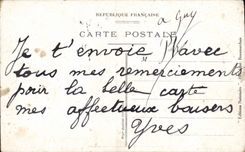 RÉPUBLIQUE FRANÇAISE
a Guy
CARTE POSTALE
Je t'envoie avec
tous mes remerciements
pour la belle carte
mes affectueux baisers
Yves